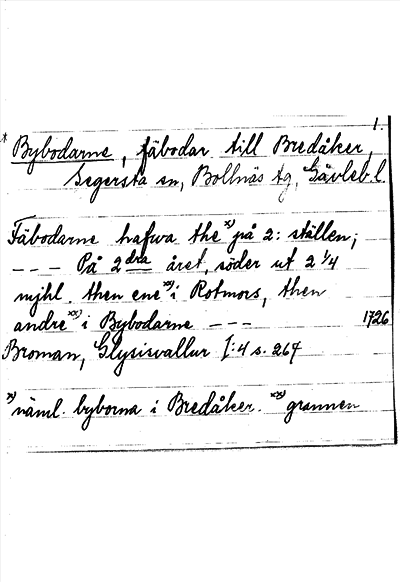 1.
* Bybodarne, fäbodar till Bredåker,
Segersta sn, Bollnäs tg, Gävleb. l.
Fäbodarne hafwa the x) på 2: ställen;
--- På 2 dra året, söder ut 2 1/4
mjhl. then ene x) i Rotmors, then
andre xx) i Bybodarne --- 1726
Broman, Glysisvallur I:4 s. 264
x) näml. byborna i Bredåker. xx) grannen